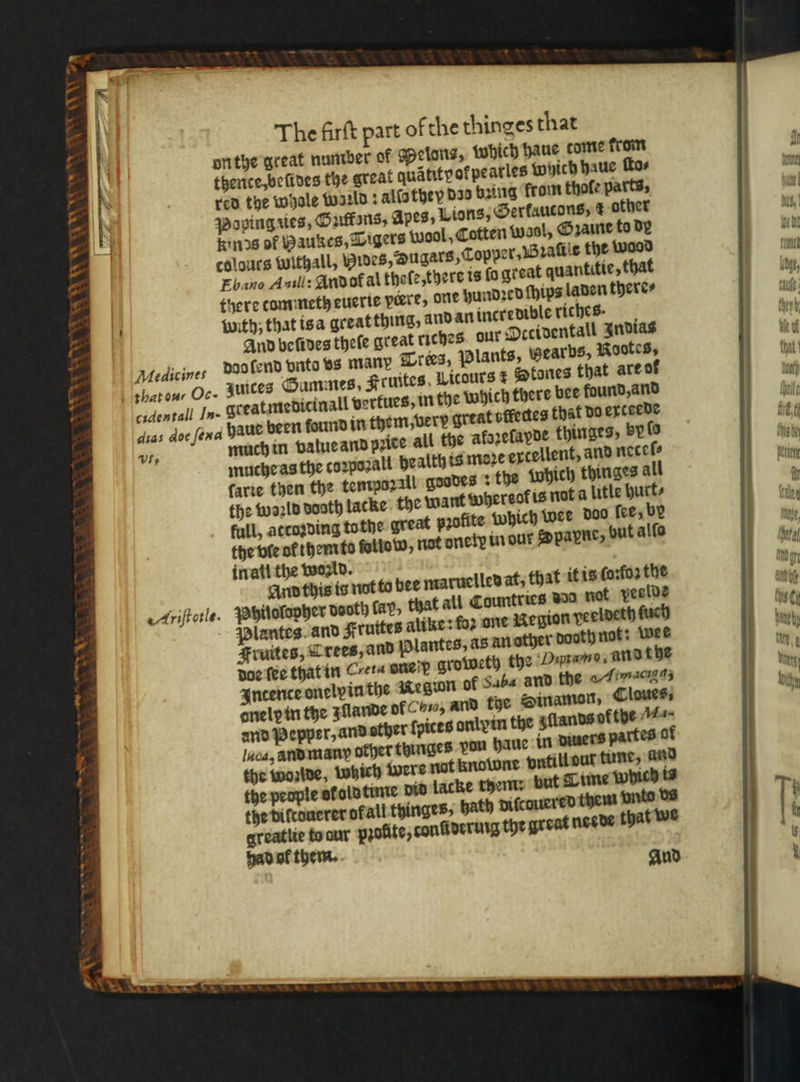 The first part of the thinges that
on the great number of Melons, which haue come from
thence, besides the great quãtity of pearles which haue sto-
red the whole world: also they doo bring from those parts,
Popingaies, Griffons, Apes, Lions, Gerfaucons, & other
kinds of Haukes, Tigers wool, Cotten wool, Graine to dy
colours withall, Hides, Sugars, Copper, Brasile the wood
Ebano Anill: And of al these, there is so great quantitie, that
there commeth euerie yeere, one hundred ships laden there-
with, that is a great thing, and an incredible riches.
And besides these great riches our Occidentall Indias
Medicines
that our Oc-
cidentall In-
dias doe send
vs,
doo send vnto vs many Trees, Plants, Hearbs, Rootes,
Iuices Gummes, Fruites, Licours & Stones that are of
great medicinall vertues, in the which there bee found, and
haue been found in them, very great effectes that do exceede
much in value and price all the aforesayde thinges, by so
muche as the corporall health is more excellent, and neces-
sarie then the temporall goodes: the which thinges all
the world dooth lacke the want whereof is not a litle hurt-
full, according to the great profite which wee doo see, by
the vse of them to follow, not onely in our Spayne, but also
in all the world.
And this is not to bee maruelled at, that it is so: for the
Aristotle.
Philosopher dooth say, that all Countries doo not yeelde
Plantes and Fruites alike: for one Region yeeldeth such
Fruites, Trees, and Plantes, as an other dooth not: wee
doe see that in Creta onely groweth the Diptamo, and the
Incence onely in the Region of Saba and the Almaciga,
onely in the Ilande of Chio, and the Sinamon, Cloues,
and Pepper, and other spices only in the Ilands of the Ma-
luca, and many other thinges you haue in diuers partes of
the worlde, which were not knowne vntill our time, and
the people of old time did lacke them: but Time which is
the discouerer of all thinges, hath discouered them vnto vs
greatlie to our profite, considering the great neede that we
had of them.
And